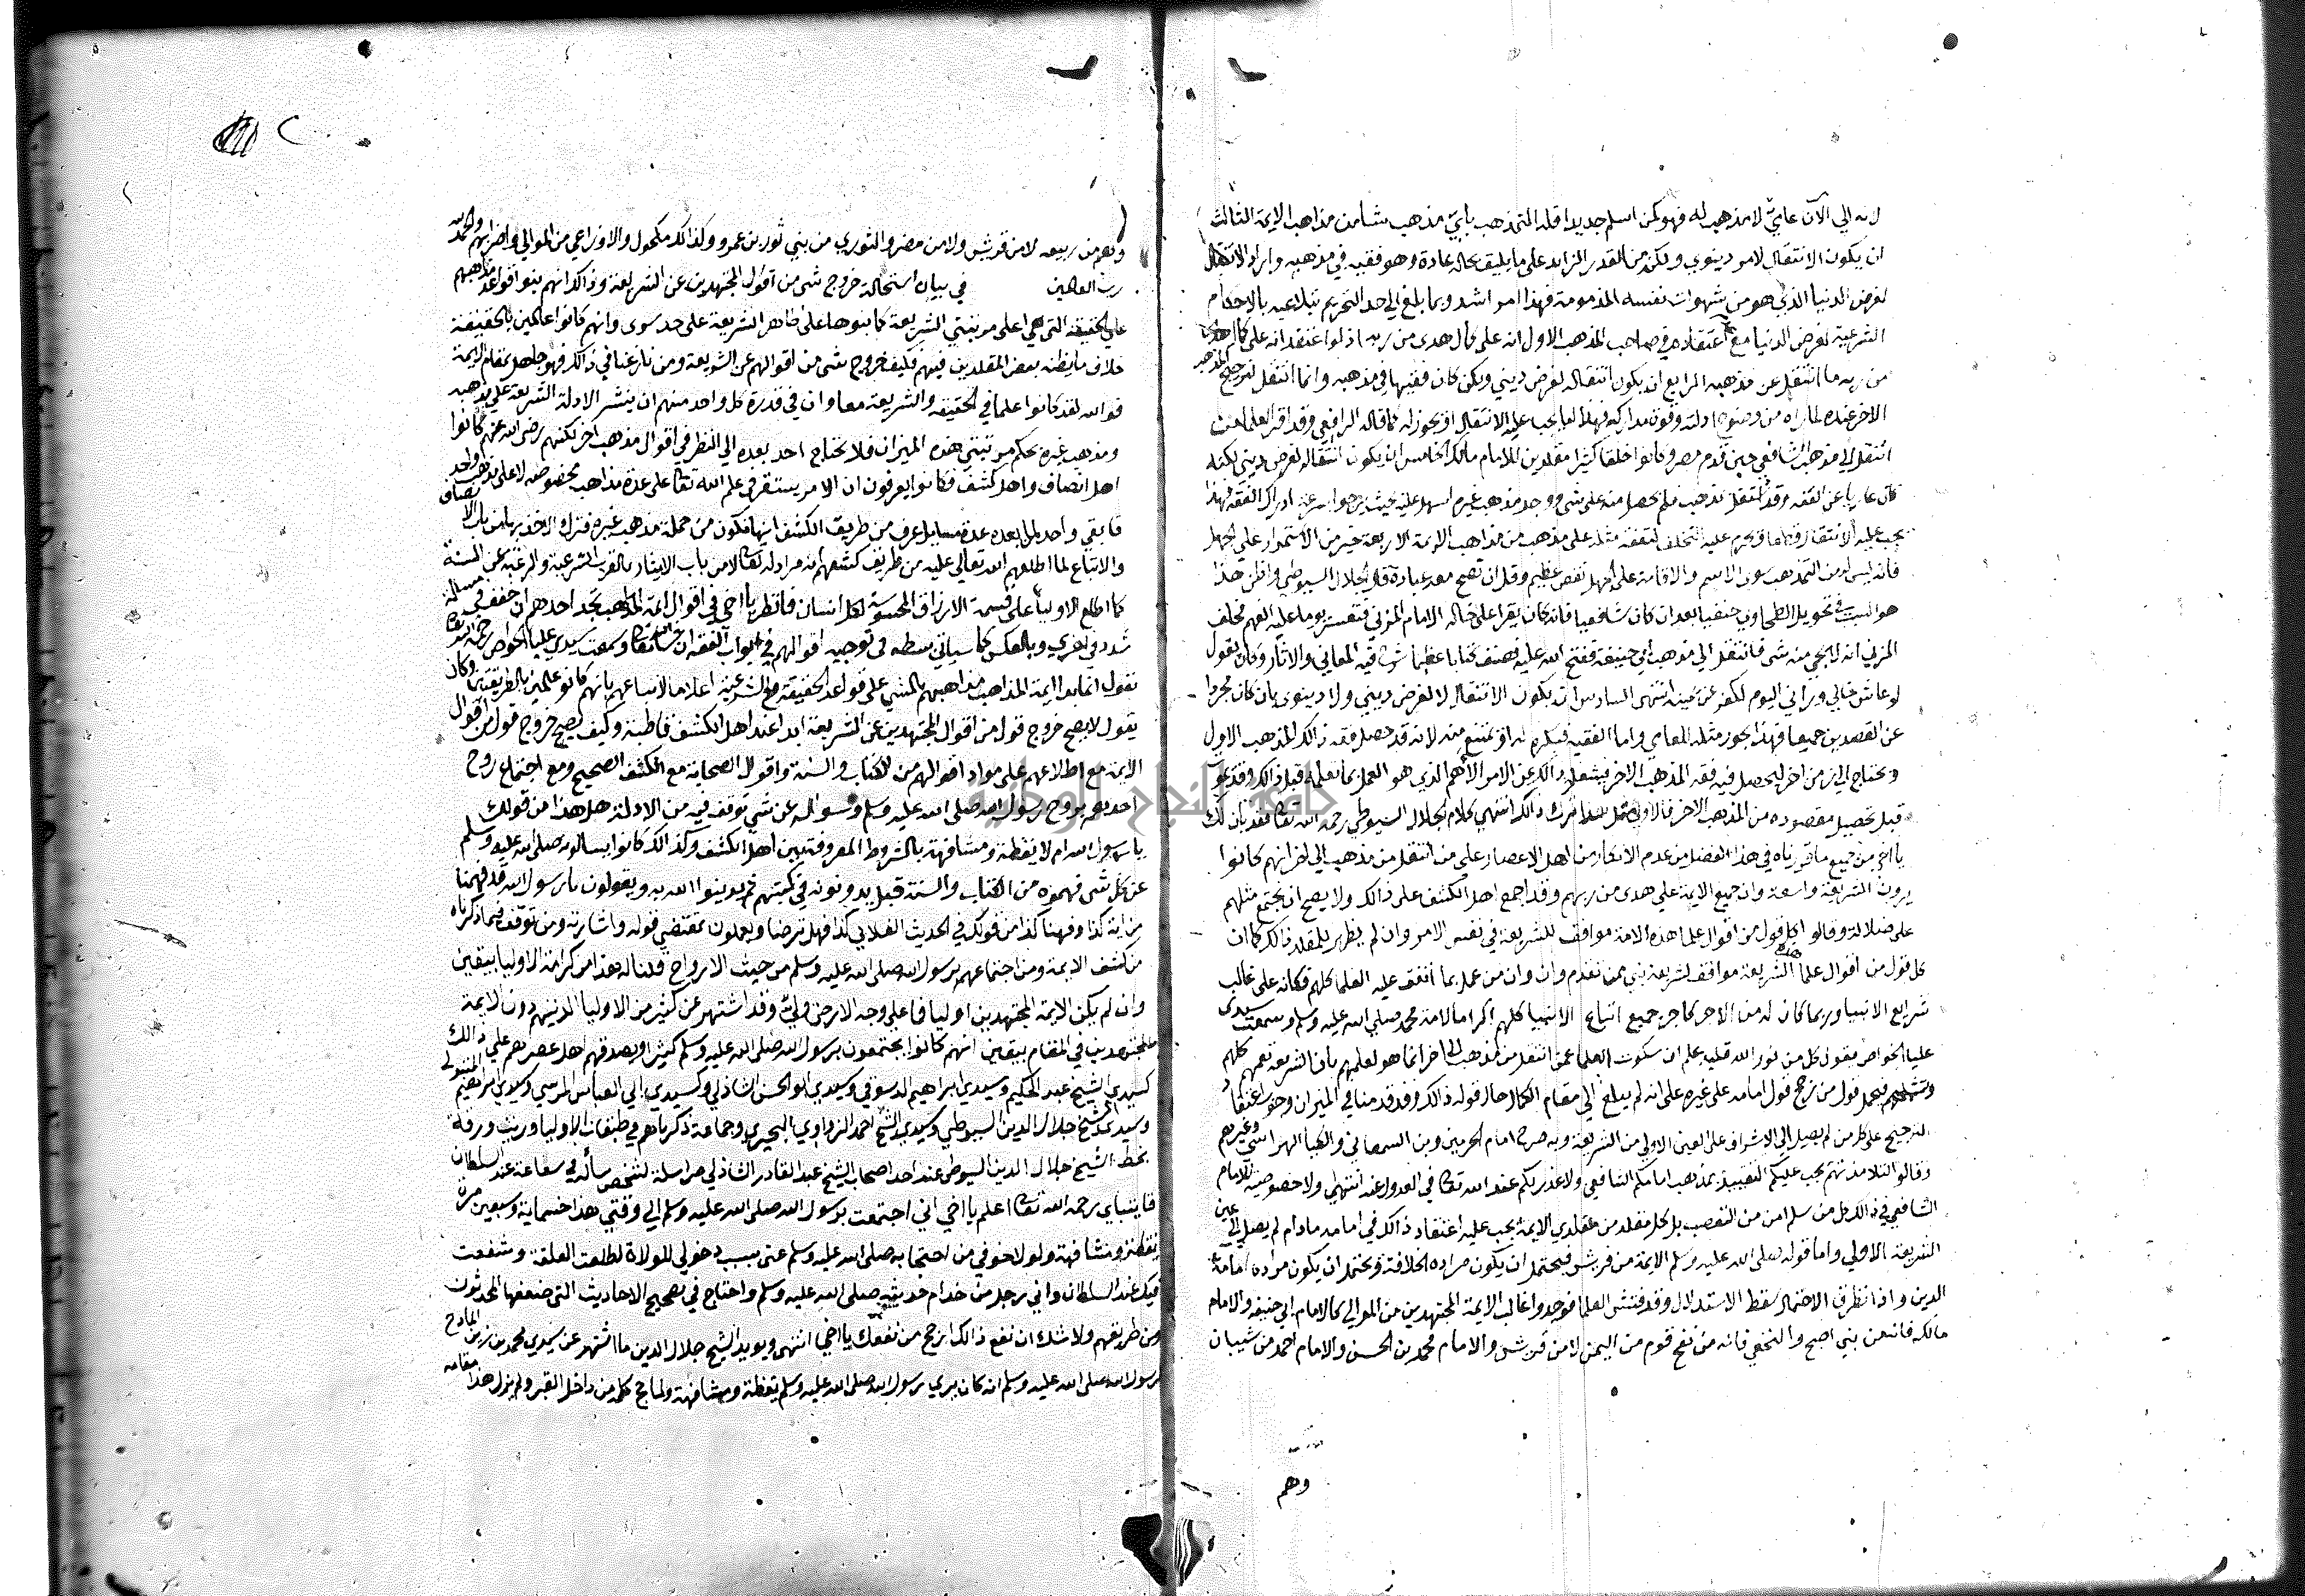 لانه الي الآن عاميّ لا مذهب له فهو كمن اسلم جديدا فله التمذهب بايّ مذهب شا من مذاهب الايمة الثالث
ان يكون الانتقال لامر دينوي ولكنه من القدر الزايد على ما يليق بحاله عادة وهو فقيه في مذهبه واراد الانتقال
لغرض الدنيا الذي هو من شهوات نفسه المذمومة فهذا امره اشد وربما بلغ الي حد التحريم لتلاعبه بالاحكام
الشرعية لغرض الدنيا مع اعتقاده في صاحب المذهب الاول انه على كمال هدى من ربه اذ لو اعتقد انه على كمال هدى
من ربه ما انتقل عن مذهبه الرابع ان يكون انتقاله لغرض ديني ولكن كان فقيها في مذهبه وانما انتقل لترجيح المذهب
الاخر عنده لما راه من وضوح ادلته وقوة مداركه فهذا اما يجب عليه الانتقال او يجوز له كما قاله الرافعي وقد اقر العلما من
انتقل الي مذهب الشافعي حين قدم مصر وكانوا خلقا كثيرا مقلدين للامام مالك الخامس ان يكون انتقاله لغرض ديني لكنه
كان عاريا عن الفقه وقد اشتغل بمذهبه فلم يحصل منه على شي ووجد مذهب غيره اسهل عليه بحيث يرجوا سرعة ادراكه الفقه فهذا
يجب عليه الانتقال قطعا ويحرم عليه التخلف لتفقه مثله على مذهب من مذاهب الايمة الاربعة خير من الاستمرار علي الجهل
فانه ليس له من التمذهب سوى الاسم والاقامة على الجهل نقص عظيم وقل ان تصح معه عبادة قال الجلال السيوطي واظن هذا
هو السبب في تحويل الطحاوي حنفيا بعد ان كان شافعيا فانه كان يقرا على خاله الامام المزني فتعسر يوما عليه الفهم فحلف
المزني انه لا يجي منه شي فانتقل الي مذهب ابي حنيفة ففتح الله عليه فصنف كتابا عظيما شرح فيه المعاني والاثار وكان يقول
لو عاش خالي وراني اليوم لكفر عن يمينه انتهى السادس ان يكون الانتقال لا لغرض ديني ولا دينوي بان كان مجردا
عن القصدين جميعا فهذا يجوز مثله للعامي واما الفقيه فيكره له او يمتنع منه لانه قد حصل فقه ذلك المذهب الاول
ويحتاج الي زمن اخر ليحصل فيه فقه المذهب الاخر فيشغله ذلك عن الامر الاهم الذي هو العمل بما تعلمه قبل ذلك وقد يموت
قبل تحصيل مقصوده من المذهب الاخر فالاولى لمثل هذا ترك ذلك انتهي كلام الجلال السيوطي رحمه الله تعالى فقد بان لك
يا اخي من جميع ما قررناه في هذا الفصل من عدم الانكار من اهل الاعصار علي من انتقل من مذهب الي اخر انهم كانوا
يرون الشريعة واسعة وان جميع الايمة علي هدى من ربهم وقد اجمع اهل الكشف على ذلك ولا يصح ان يجتمع مثلهم
على ضلالة وقالوا كل قول من اقوال علما هذه الامة موافق للشريعة في نفس الامر وان لم يظهر للمقلد ذلك كما ان
كل قول من اقوال علما الشريعة موافق لشريعة نبي ممن تقدم وان من عمل بما اتفق عليه العلما كلهم فكانه على غالب
شرايع الانبيا وربما كان له من الاجر كاجر جميع اتباع الانبيا كلهم اكراما لامة محمد صلي الله عليه وسلم وسمعت سيدي
عليا الخواص يقول كل من نور الله قلبه يعلم ان سكوت العلما عمن انتقل من مذهب الي اخر انما هو لعلمهم بان الشريعة تعمهم كلهم
وتشملهم فيحمل قول من رجح قول امامه على غيره على انه لم يبلغ الي مقام الكمال حال قوله ذلك وقد قدمنا في الميزان وجوب اعتقاد
الترجيح على كل من لم يصل الي الاشراف على العين الاولي من الشريعة وبه صرح امام الحرمين وبن السمعاني والكيا الهراسي وغيرهم
وقالوا لتلامذتهم يجب عليكم التقييد بمذهب امامكم الشافعي ولا عذر لكم عند الله تعالى في العدول عنه انتهي ولا خصوصية للامام
الشافعي في ذلك كل من سلم امن من التعصب بل كل مقلد من مقلدي الايمة يجب عليه اعتقاد ذلك في امامه مادام لم يصل الي عين
الشريعة الاولي واما قوله صلى الله عليه وسلم الايمة من قريش فيحتمل ان يكون مراده الخلافة ويحتمل ان يكون مراده امامة
الدين واذا تطرق الاحتمال سقط الاستدلال وقد فتش العلما فوجدوا غالب الايمة المجتهدين من الموالي كالامام ابي حنيفة والامام
مالك فانه من بني اصبح والنخعي فانه من نخع قوم من اليمن لا من قريش والامام محمد بن الحسن والامام احمد من شيبان
وهم
وهم من ربيعه لا من قريش ولا من مضر والثوري من بني ثور بن عمرو وكذلك مكحول والاوزاعي من الموالي واضرابهم والحمد لله
رب العالمين في بيان استحالة خروج شي من اقوال المجتهدين عن الشريعة وذلك انهم بنوا قواعد مذهبهم
علي الحقيقة التي هي اعلى مرتبتي الشريعة كما بنوها على ظاهر الشريعة على حد سوى وانهم كانوا عالمين بالحقيقة
خلاف ما يظنه بعض المقلدين فيهم فكيف خروج شي من اقوالهم عن الشريعة ومن نازعنا في ذلك فهو جاهل بمقام الايمة
فوالله لقد كانوا علما في الحقيقة والشريعة معا وان في قدرة كل واحد منهم ان ينشر الادلة الشرعية علي مذهبه
ومذهب غيره بحكم مرتبتي هذه الميزان فلا يحتاج احد بعده الي النظر في اقوال مذهب اخر لكنهم رضي الله عنهم كانوا
اهل انصاف واهل كشف فكانوا يعرفون ان الامر يستقر في علم الله تعالى على عدة مذاهب مخصوصه لا على مذهب واحد
فابقي واحد لمن بعده عدة مسايل عرف من طريق الكشف انها تكون من جملة مذهب غيره فترك الاخذ بها من باب الانصاف
والاتباع لما اطلعهم الله تعالي عليه من طريق كشفهم انه مراد له تعالى لا من باب الايثار بالقرب الشرعية والرغبة عن السنة
كما اطلع الاوليا على قسمة الارزاق المحسوسة لكل انسان فانظر يا اخي في اقوال ايمة المذاهب تجد احدهم ان خفف في مسالة
شدد في اخري وبالعكس كما سياتي بسطه في توجيه اقوالهم في ابواب الفقه ان شا الله تعالى وسمعت سيدي عليا الخواص رحمه الله تعالى
يقول انما ايد ايمة المذاهب مذاهبهم بالمشي على قواعد الحقيقة مع الشريعة اعلاما لاتباعهم بانهم كانوا عالمين بالطريقتين وكان
يقول لا يصح خروج قول من اقوال المجتهدين عن الشريعة ابدا عند اهل الكشف قاطبة وكيف يصح خروج قول من اقوال
الايمة مع اطلاعهم على مواد اقوالهم من الكتاب والسنة واقوال الصحابة مع الكشف الصحيح ومع اجتماع روح
احدهم بروح رسول الله صلى الله عليه وسلم وسواله عن شي توقف فيه من الادلة هل هذا من قولك
يا رسول الله ام لا يقظة ومشافهة بالشروط المعروفة بين اهل الكشف وكذلك كانوا يسالونه صلى الله عليه وسلم
عن كل شي فهموه من الكتاب والسنة قبل يدونونه في كتبهم ثم يدينوا الله به ويقولون يا رسول الله قد فهمنا
من اية كذا وفهمنا كذا من قولك في الحديث الفلاني كذا فهل ترضا ويعملون بمقتضى قوله واشارته ومن توقف فيما ذكرناه
من كشف الايمة ومن اجتماعهم برسول الله صلى الله عليه وسلم من حيث الارواح قلنا له هذا من كرامة الاوليا بيقين
وان لم يكن الايمة المجتهدين اوليا فما علي وجه الارض وليّ وقد اشتهر عن كثير من الاوليا الذين هم دون الايمة
المجتهدين في المقام بيقين انهم كانوا يجتمعون برسول الله صلى الله عليه وسلم كثيرا ويصدقهم اهل عصرهم علي ذلك
كسيدي الشيخ عبد الحكيم وسيدي ابراهيم الدسوقي وسيدي ابو الحسن الشاذلي وكسيدي ابي العباس المرسي وسيدي ابراهيم المتبولي
وسيدي الشيخ جلال الدين السيوطي وسيدي الشيخ احمد الزواوي البحيري وجماعة ذكرناهم في طبقات الاوليا ورايت ورقة
بخط الشيخ جلال الدين السيوطي عند احد اصحاب الشيخ عبد القادر الشاذلي مراسلة لشخص سأله في شفاعة عند السلطان
قايتباي رحمه الله تعالى اعلم يا اخي انني اجتمعت برسول الله صلى الله عليه وسلم الي وقتي هذا خمسماية وسبعين مرة
يقظة ومشافهة ولولا خوفي من احتجابه صلى الله عليه وسلم عني بسبب دخولي للولاة لطلعت القلعة وشفعت
فيك عند السلطان واني رجل من خدام حديثه صلى الله عليه وسلم واحتاج في تصحيح الاحاديث التي ضعفها المحدثون
من طريقهم ولا شك ان نفع ذلك ارجح من نفعك يا اخي انتهى ويويد الشيخ جلال الدين ما اشتهر عن سيدي محمد بن زين المادح
لرسول الله صلى الله عليه وسلم انه كان يري رسول الله صلى الله عليه وسلم يقظة ومشافهة ولما حج كلمه من داخل القبر ولم يزل هذا مقامه
جامعة النجاح الوطنية